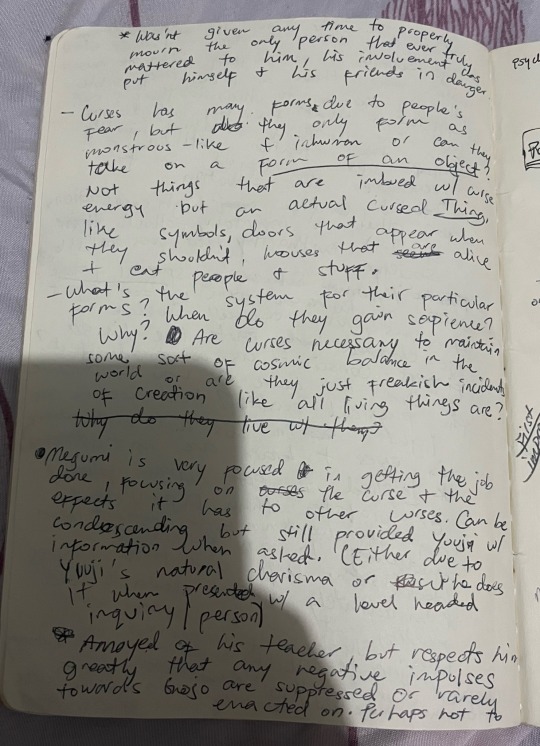 * Wasn't given any time to properly
mourn the only person that ever truly
mattered to him, his involvement has
put himself & his friends in danger
- Curses has many forms, due to people's
fear, but do they only form as
monstrous-like & inhuman or can they
take on a form of an object?
Not things that are imbued w/ curse
energy but an actual cursed Thing,
like symbols, doors that appear when
they shouldn't, houses that are alive
& eat people & stuff.
- What's the system for their particular
forms? When do they gain sapience?
Why? Are curses necessary to maintain
some sort of cosmic balance in the
world or are they just freakish incidents
of creation like all living things are?
Why do they live w/ them?
• Megumi is very focused in getting the job
done, focusing on curses the curse & the
effects it has to other curses. Can be
condescending but still provided Youji w/
information when asked. (Either due to
Youji's natural charisma or he does
it when presented w/ a level headed
inquiry / person)
* Annoyed of his teacher, but respects him
greatly that any negative impulses
towards Gojo are suppressed or rarely
enacted on. Perhaps not to
psych
First